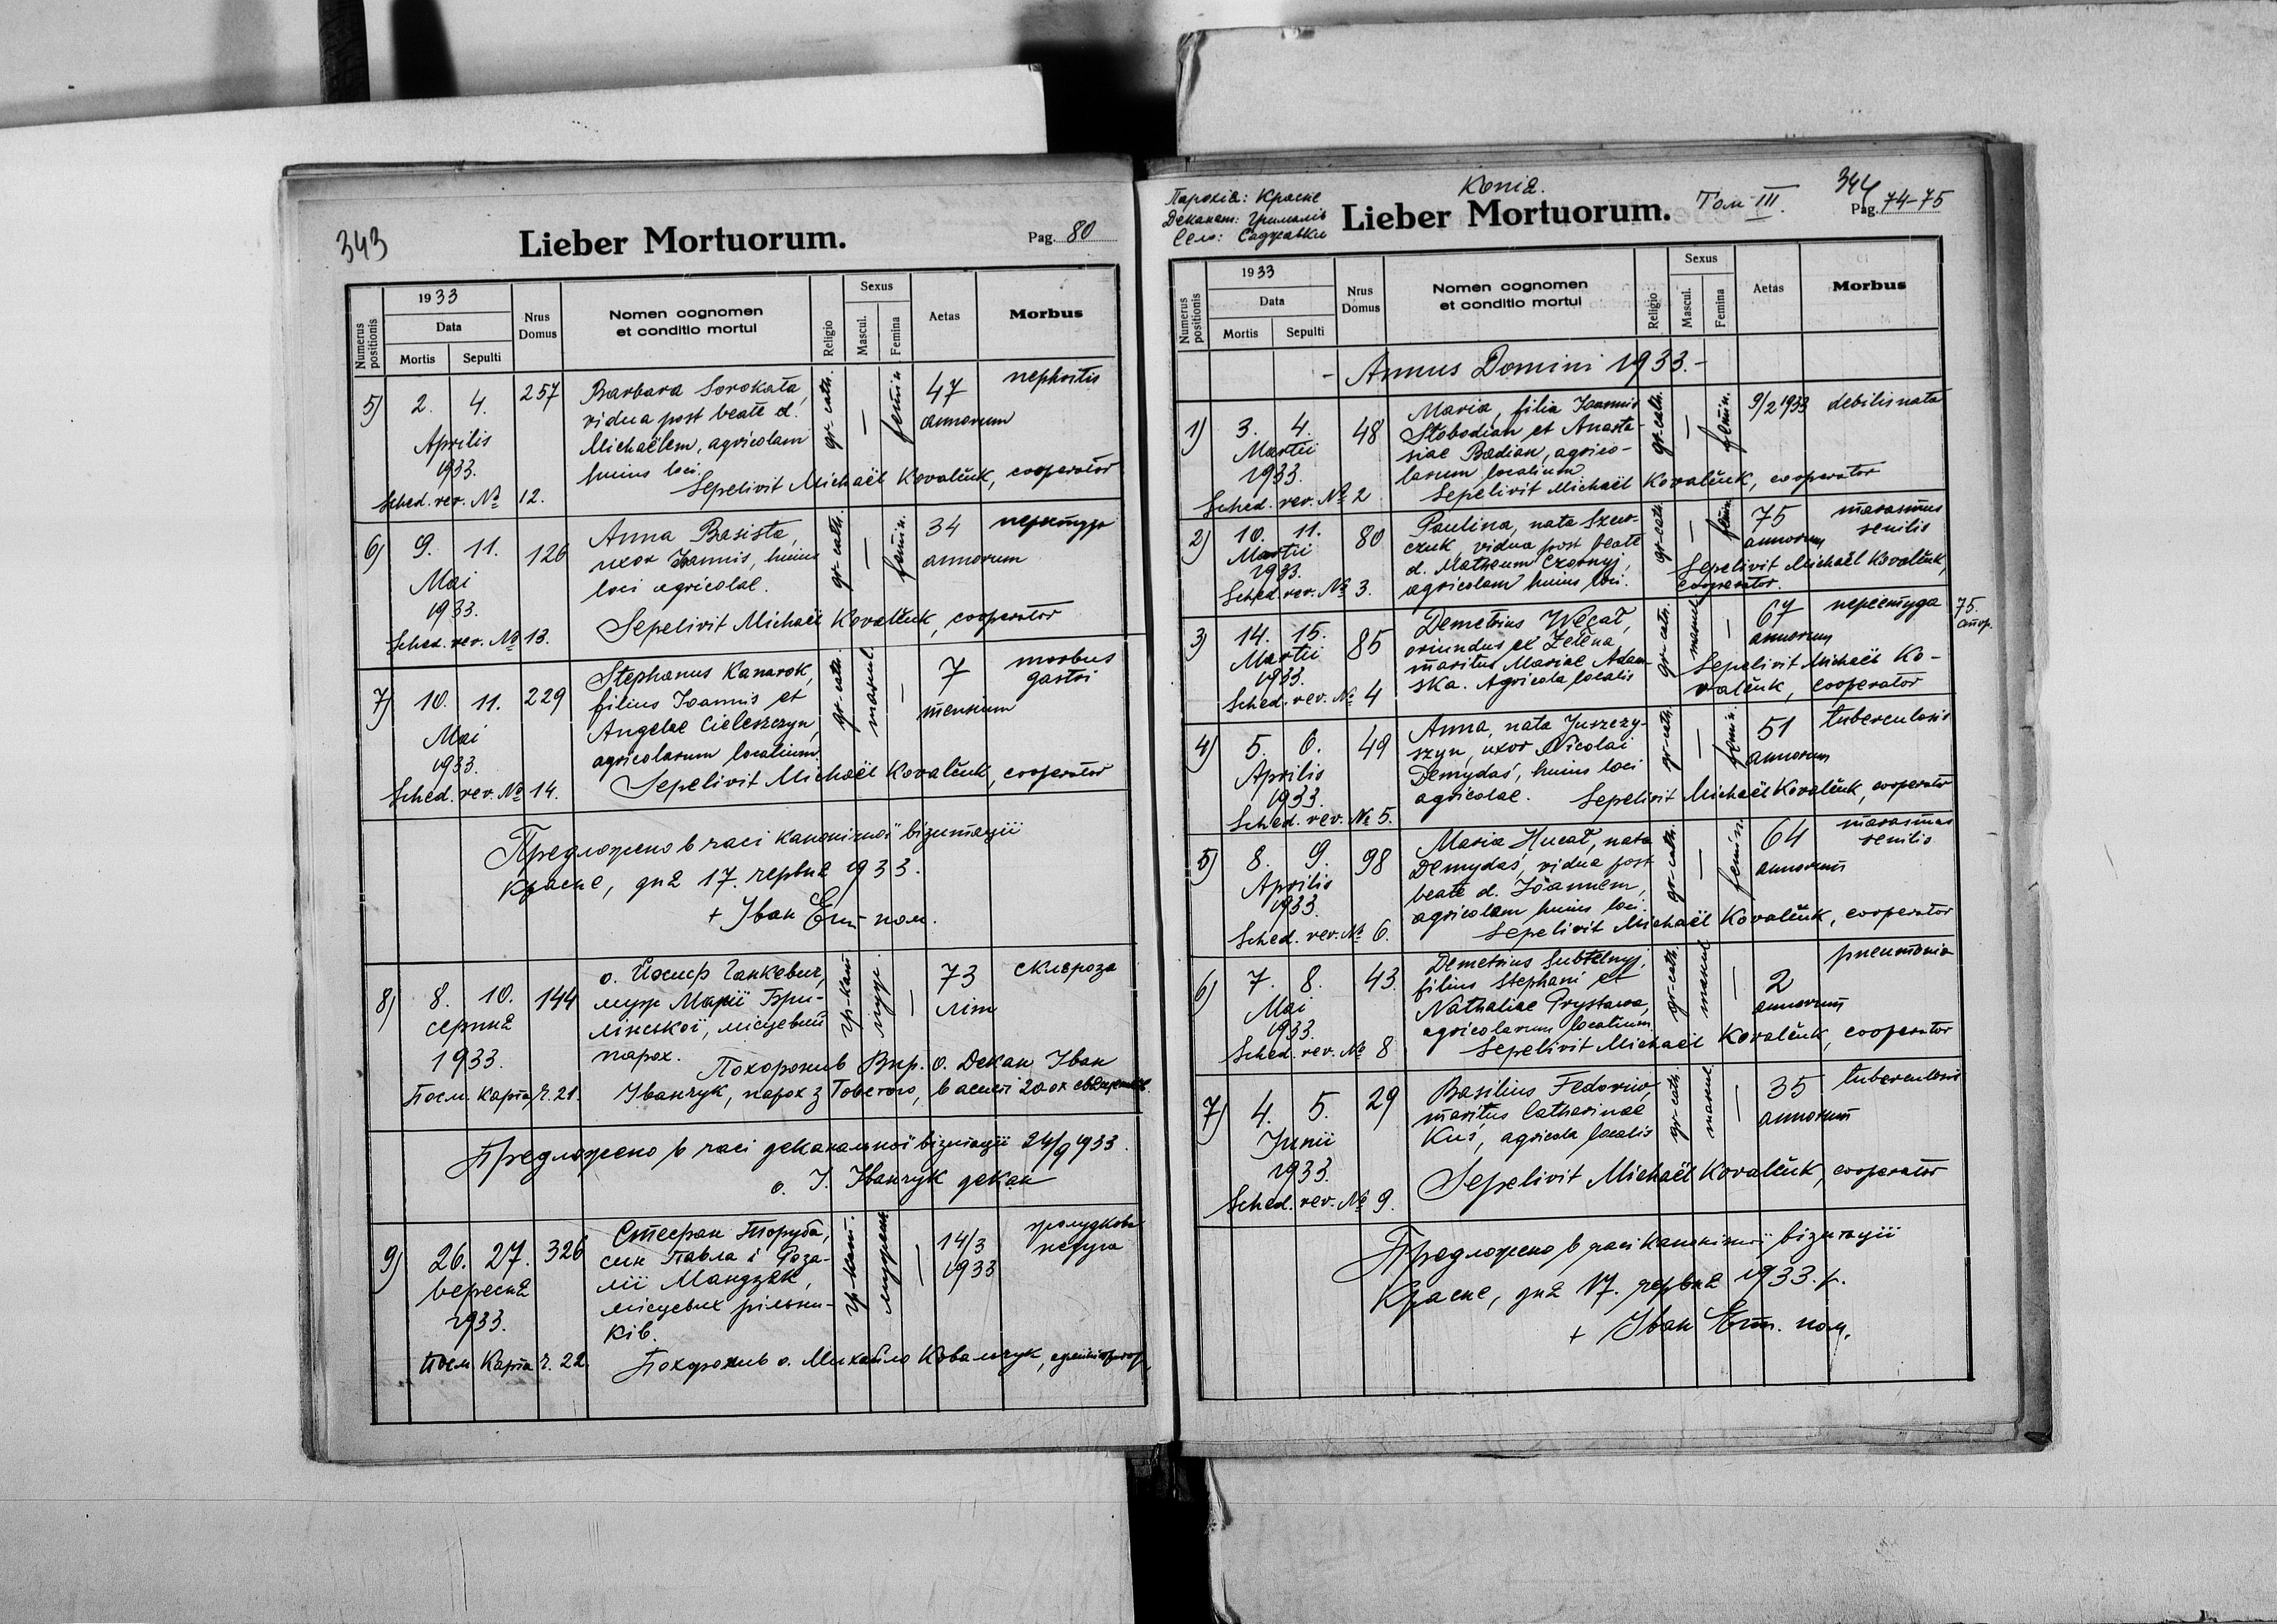 343
Lieber Mortuorum.
Pag. 80
Numerus positionis
1933
Data
Mortis
Sepulti
Nrus Domus
Nomen cognomen et conditio mortui
Religio
Sexus
Mascul.
Femina
Aetas
Morbus
5) 2. 4. 257 Barbara Sorokata, gr-cath. — femin. 47 nephritis
vidua post beate d. annorum
Aprilis Michaëlem, agricolam
1933. huius loci.
Sched. rev. № 12. Sepelivit Michaël Kovalčuk, cooperator
6) 9. 11. 126 Anna Basista, gr-cath. — femin. 34
Mai uxor Ioannis, huius annorum
1933. loci agricolae.
Sched. rev. № 13. Sepelivit Michaël Kovalčuk, cooperator
7) 10. 11. 229 Stephanus Kanarok, gr-cath. mascul. — 7 morbus
filius Joannis et mensium gastri
Mai Angelae Cieleszczyn,
1933. agricolarum localium.
Sched. rev. № 14. Sepelivit Michaël Kovalčuk, cooperator
Предложено в часі канонічної візитації
Красне, дня 17. червня 1933.
+ Іван Еп. пом.
8) 8. 10. 144 о. Йосиф Ганкевич, гр-кат. муж. — 73 склероза
серпня муж Марії Бри- літ
1933. лінської, місцевий
парох. Похоронив Впр. о. Декан Іван
Посм. карта ч. 21. Іванчук, парох з Товстого, в асисті 20-ох
Предложено в часі деканальної візитації 24/9 1933.
о. І. Іванчук декан
9) 26. 27. 326 Стефан Торуба, гр-кат. — 14/3 жолудкова
вересня син Павла і Роза- 1933 недуга
1933. лії Мандзяк,
місцевих рільни-
ків.
Посм. Карта ч. 22. Похоронив о. Михайло Ковальчук,
Парохія: Красне
Деканат: Грималів
Село: Саджавки
Копія.
Lieber Mortuorum.
Том III.
344
Pag. 74-75
Numerus positionis
1933
Data
Mortis
Sepulti
Nrus Domus
Nomen cognomen et conditio mortui
Religio
Sexus
Mascul.
Femina
Aetas
Morbus
- Annus Domini 1933. -
1) 3. 4. 48 Maria, filia Joannis gr-cath. — femin. 9/2 1933 debilis nata
Martii Slobodian et Anasta-
1933. siae Badian, agrico-
larum localium
Sched. rev. № 2 Sepelivit Michaël Kovalčuk, cooperator
2) 10. 11. 80 Paulina, nata Szew- gr-cath. — femin. 75 marasmus
Martii czuk, vidua post beate annorum senilis
1933. d. Matheum Czornyj, Sepelivit Michaël Kovalčuk,
Sched. rev. № 3. agricolam huius loci. cooperator.
3) 14. 15. 85 Demetrius Węgał, gr-cath. mascul. — 67 75.
Martii oriundus ex Zełena annorum
1933. maritus Mariae Adam- Sepelivit Michaël Ko-
Sched. rev. № 4 ska. Agricola localis valčuk, cooperator
4) 5. 6. 49 Anna, nata Juszczy- gr-cath. — femin. 51 tuberculosis
Aprilis szyn, uxor Nicolai annorum
1933. Demydaś, huius loci
Sched. rev. № 5. agricolae. Sepelivit Michaël Kovalčuk, cooperator
5) 8. 9. 98 Maria Hucał, nata gr-cath. — femin. 64 marasmus
Aprilis Demydaś, vidua post annorum senilis
1933. beate d. Joannem,
agricolam huius loci.
Sched. rev. № 6. Sepelivit Michaël Kovalčuk, cooperator
6) 7. 8. 43 Demetrius Subtelnyj, gr-cath. mascul — 2 pneumonia
Mai filius Stephani et annorum
1933. Nathaliae Prystawa,
agricolarum localium
Sched. rev. № 8 Sepelivit Michaël Kovalčuk, cooperator
7) 4. 5. 29 Basilius Fedoriw, gr-cath. mascul — 35 tuberculosis
Junii maritus Catharinae annorum
1933. Kuś, agricola localis
Sched. rev. № 9. Sepelivit Michaël Kovalčuk, cooperator
Предложено в часі канонічної візитації
Красне, дня 17. червня 1933. р.
+ Іван Еп. пом.